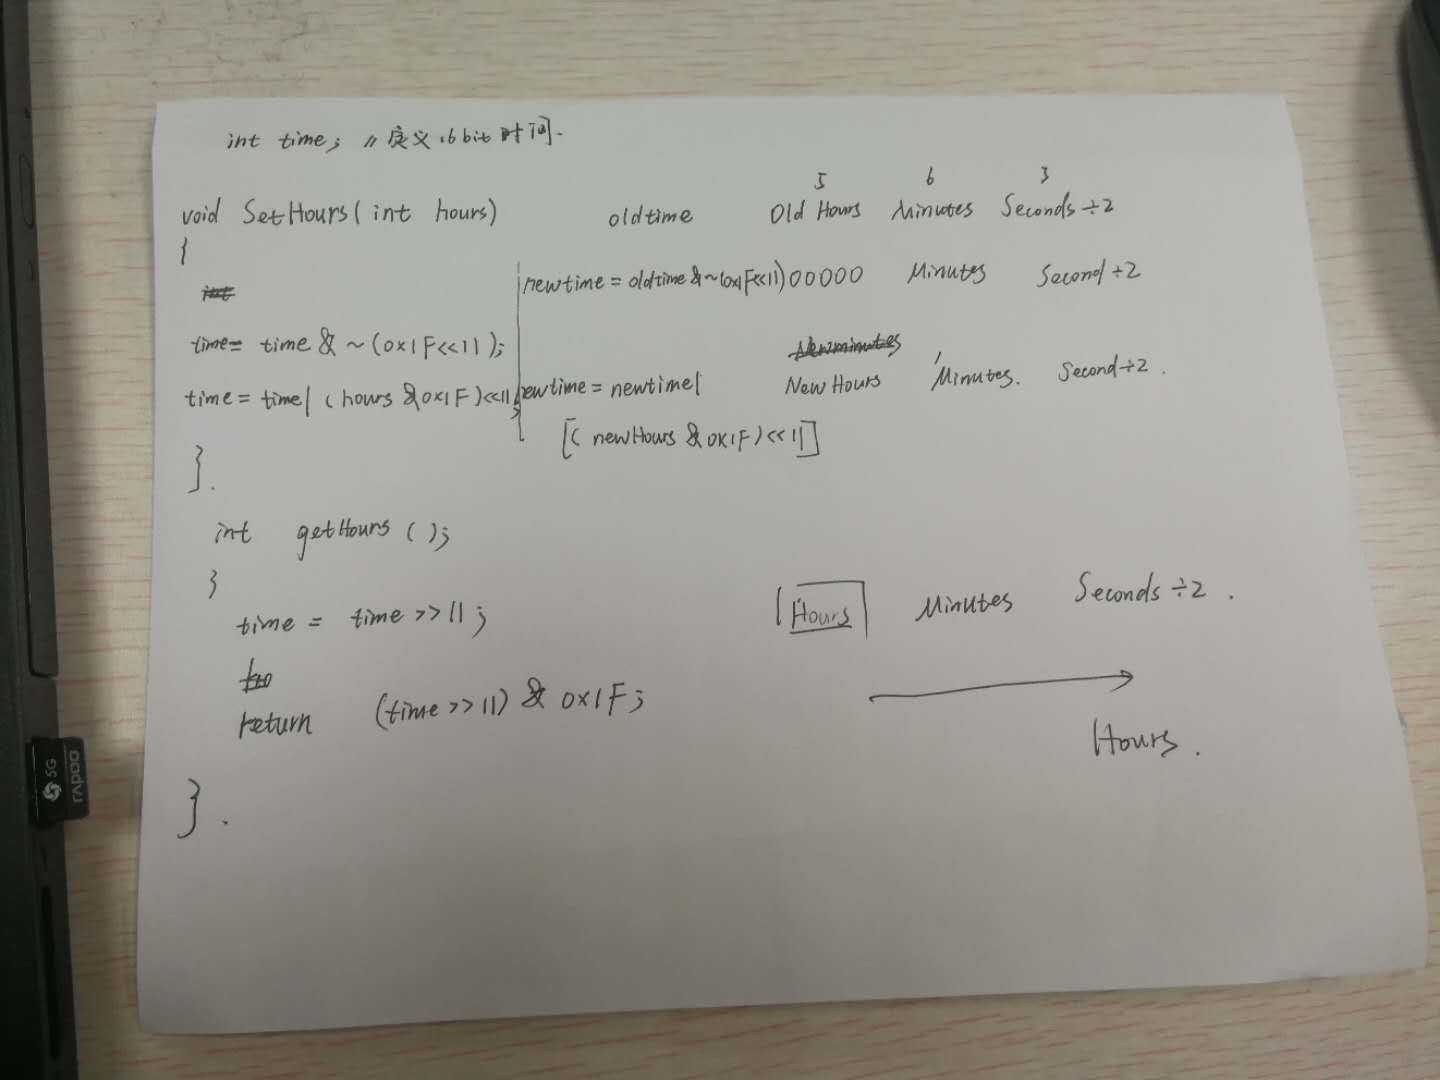 int time; // 定义16bit时间.
5 6 3
void SetHours( int hours) oldtime Old Hours Minutes Seconds÷2
{
newtime = oldtime & ~(0x1F<<11) 00000 Minutes Second÷2
time= time & ~(0x1F<<11);
time= time| (hours &0x1F)<<11; newtime = newtime| New Hours Minutes. Second÷2.
[( newHours & 0x1F)<<11]
}.
int getHours ( );
}
time = time >>11; Hours Minutes Seconds ÷2 .
return (time >>11) & 0x1F;
Hours.
}.
5G
rapoo